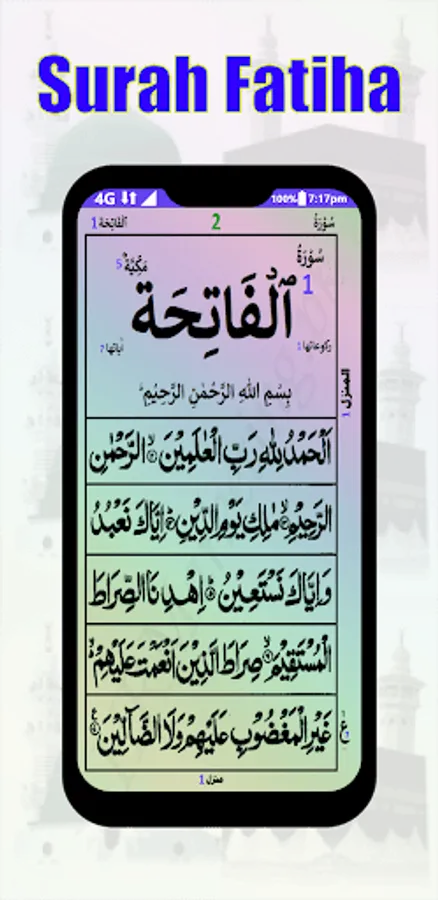 Surah Fatiha
4G 100% 7:17pm
سُوْرَةُ 2 اَلْفَاتِحَة 1
سُوْرَةُ 1
مَكِّيَّةٌ 5
ٱلْفَاتِحَة
رکوعاتها 1 اٰیاتها 7
بِسْمِ اللهِ الرَّحْمٰنِ الرَّحِيْمِ
المنزل 1
اَلْحَمْدُ لِلّٰهِ رَبِّ الْعٰلَمِيْنَ ۙ الرَّحْمٰنِ
الرَّحِيْمِ ۙ مٰلِكِ يَوْمِ الدِّيْنِ ؕ اِيَّاكَ نَعْبُدُ
وَاِيَّاكَ نَسْتَعِيْنُ ؕ اِهْدِنَا الصِّرَاطَ
الْمُسْتَقِيْمَ ۙ صِرَاطَ الَّذِيْنَ اَنْعَمْتَ عَلَيْهِمْ ۙ
غَيْرِ الْمَغْضُوْبِ عَلَيْهِمْ وَلَا الضَّآلِّيْنَ
منزل 1